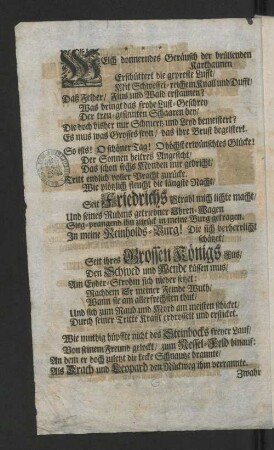 Welch donnerndes Geräusch der brüllenden
Karthaunen
Erschüttert die gepreste Lufft/
Mit Schweffel-reichem Knall und Dufft/
Daß Felder/ Fluß und Wald erstaunen?
Was bringt das frohe Lust-Geschrey
Der treu-gesinnten Schaaren bey/
Die doch bisher nur Schmertz und Leyd bemeistert?
Es muß was Grosses seyn/ das ihre Brust begeistert.
So ists! O schöner Tag! O höchst erwünschtes Glücke!
Der Sonnen heitres Angesicht/
Das schon sechs Monden mir gebricht/
Tritt endlich voller Pracht zurücke.
Wie plötzlich fleucht die längste Nacht/
Seit Friedrichs Strahl mich lichte macht/
Und seines Ruhms gekröhnter Ehren-Wagen
Sieg-prangend ihn zurück in meine Burg getragen.
In meine Reinholds-Burg! Die sich verherrlicht
schätzet/
Seit ihres Grossen Königs Fus/
Den Schwed und Wende küssen muß/
Am Eyder-Strohm sich nieder setzet:
Nachdem Er meiner Feinde Wuth/
Wann sie am allerfrechsten thut/
Und sich zum Raub und Mord am meisten schicket,
Durch seiner Tritte Krafft erdrosselt und ersticket.
Wie muthig hüpffte nicht des Steinbocks freyer Lauf/
Von seinem Freund gelockt/ zum Nessel-Feld hinan?
An dem er doch zuletzt die kecke Schnautze brannte/
Als Drach und Leopard den Rückweg ihm verrannte.
Zwahr